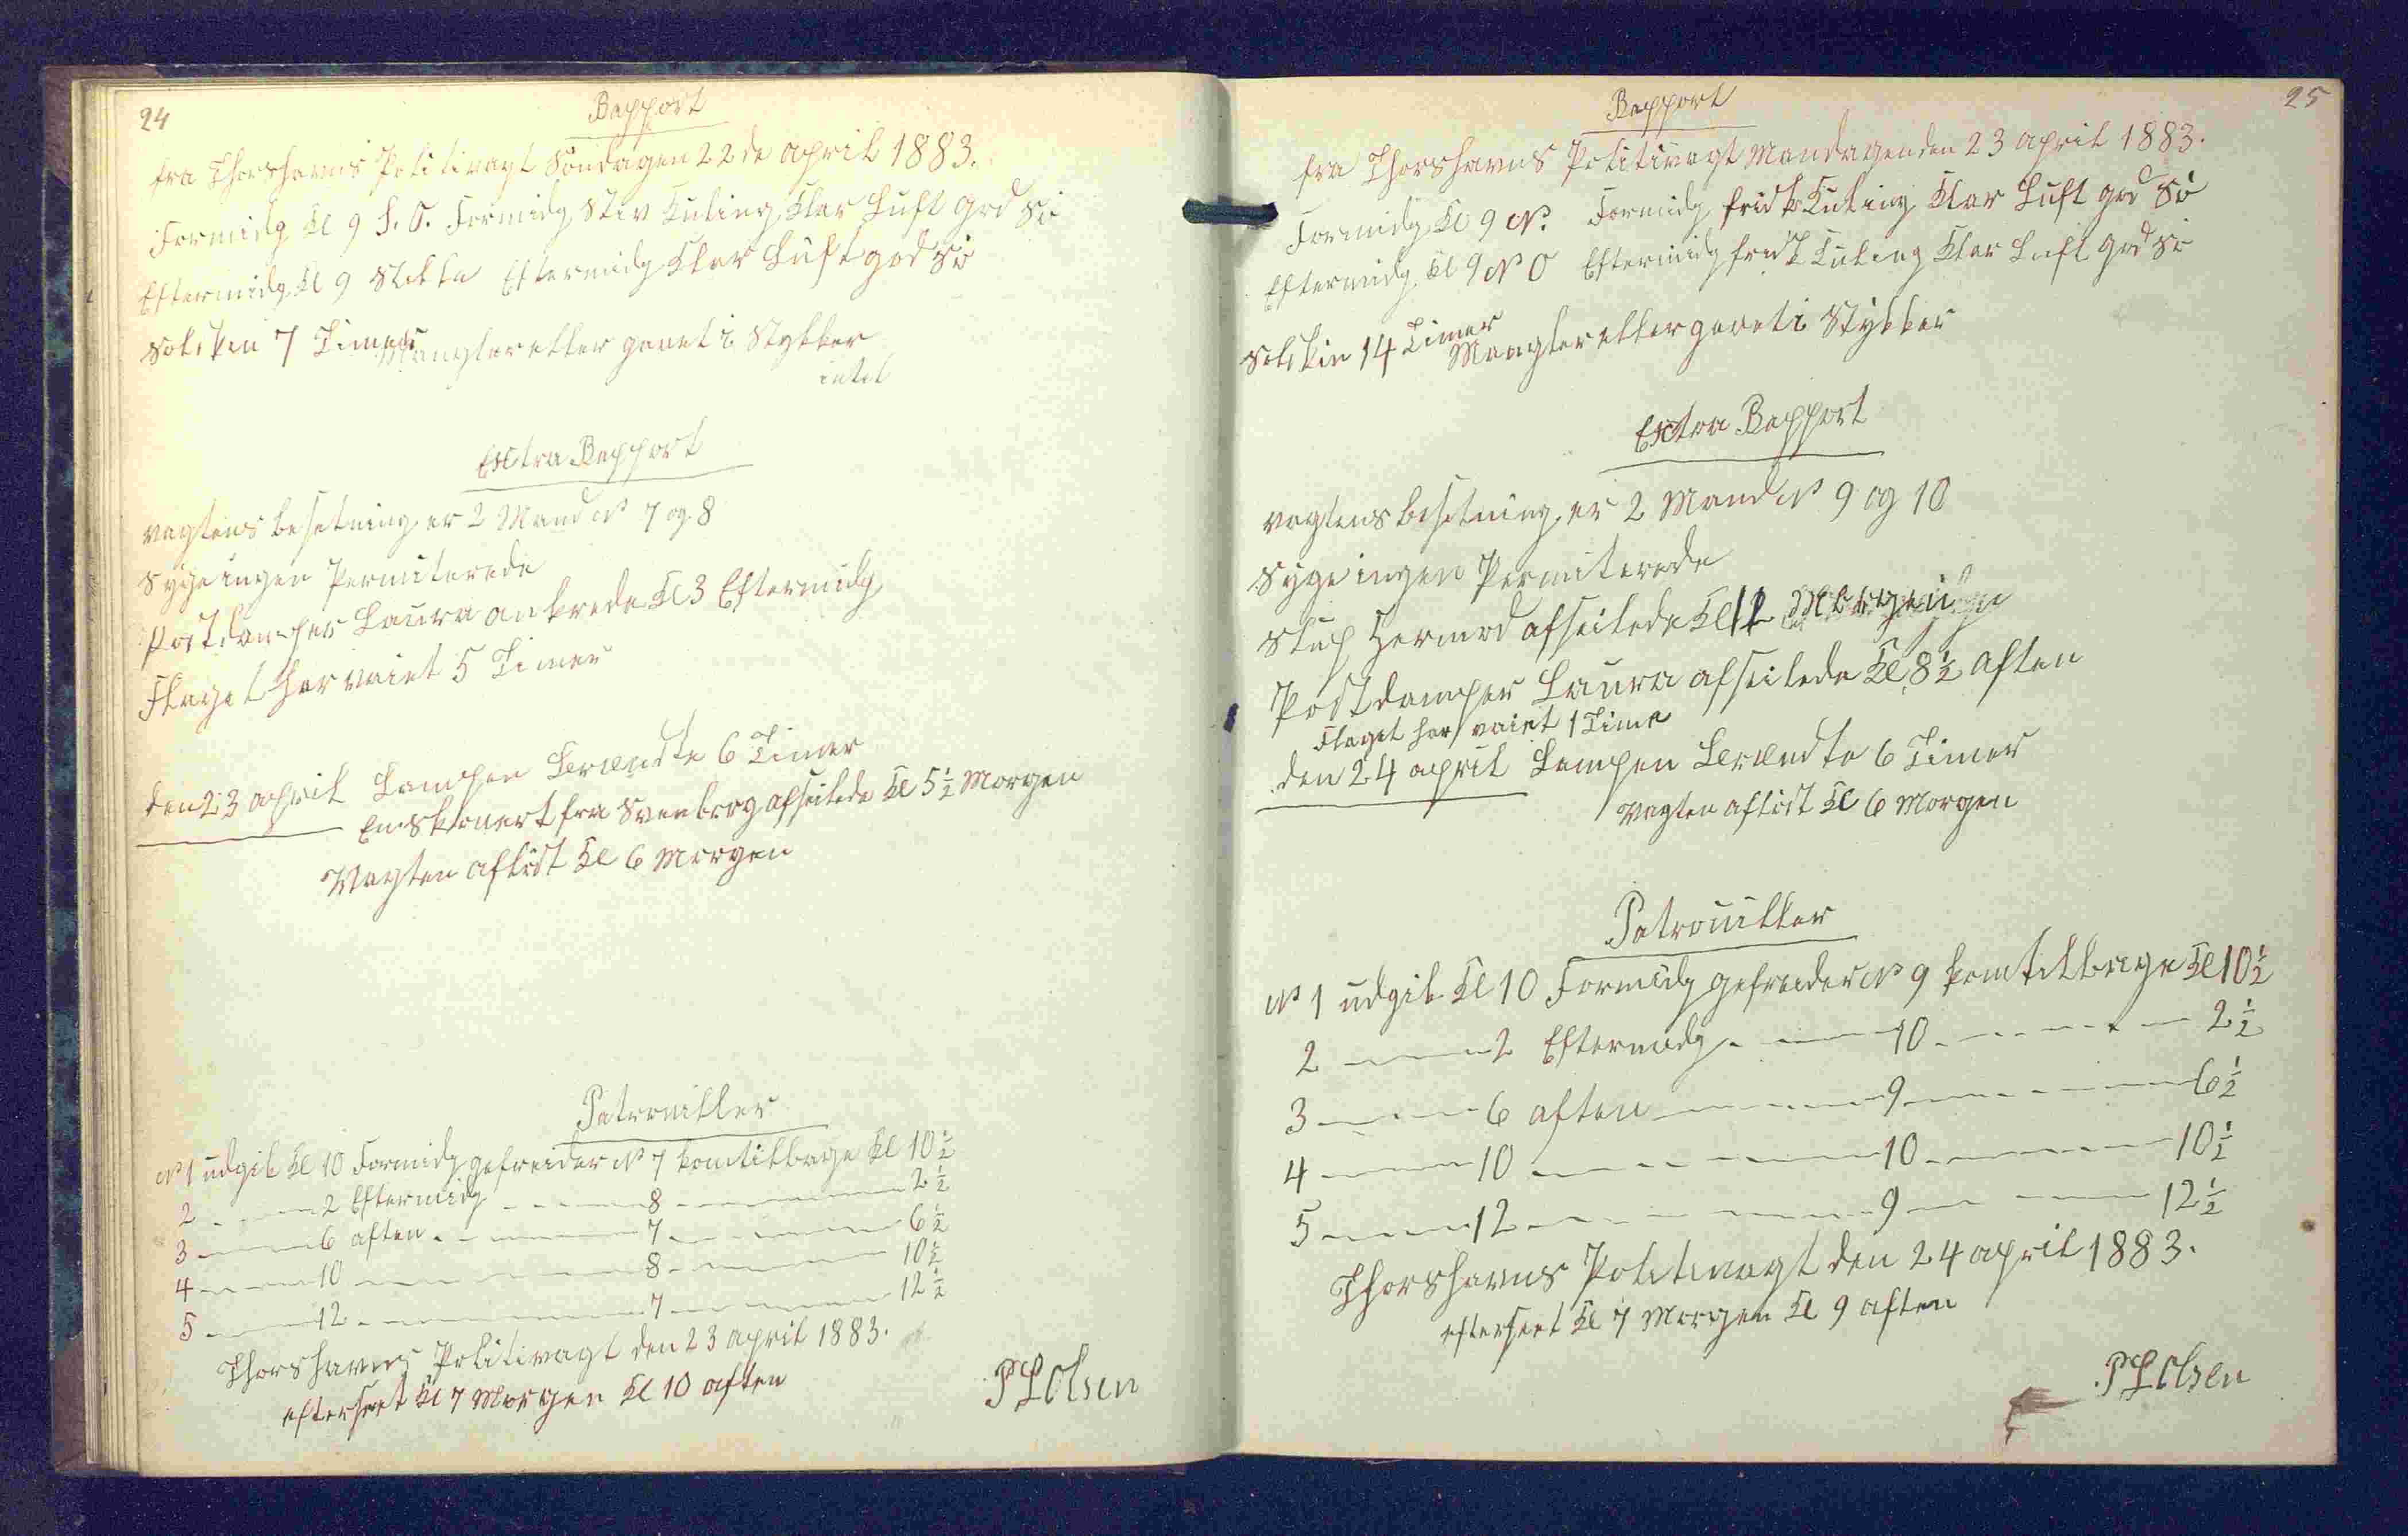 24
Rapport
fra Thorshavns Politivagt Söndagen 22de april 1883.
Formidg Kl 9 S. O. Formidg Stiv Kuling Klar Luft god Sö
Eftermidg Kl 9 Stille Eftermidg Klar Luft god Sö
Solskin 7 Timer
Mangler eller gaaet i Stykker
intet
Extra Rapport
vagtens besetning er 2 Mand No 7 og 8
Syge ingen Permiterede
Postdamper Laura ankrede Kl 3 Eftermidg
Flaget har vaiet 5 Timer
den 23 april Lampen Brændte 6 Timer
En Skonert fra Svenborg afseilede Kl 5½ Morgen
Vagten aflöst Kl 6 Morgen
Patrouiller
No 1 udgik Kl 10 Formidg gefreider No 7 kom tilbage Kl 10½
2 — 2 Eftermidg — 8 — 2½
3 — 6 aften — 7 — 6½
4 — 10 — 8 — 10½
5 — 12 — 7 — 12½
Thorshavns Politivagt den 23 april 1883.
efterseet Kl 7 Morgen Kl 10 aften
P Olsen
25
Rapport
fra Thorshavns Politivagt Mandagen den 23 april 1883.
Formidg Kl 9 N. Formidg frisk Kuling Klar Luft god Sö
Eftermidg Kl 9 N O Eftermidg frisk Kuling Klar Luft god Sö
Solskin 14 Timer
Mangler eller gaaet i Stykker
Extra Rapport
vagtens besetning er 2 Mand No 9 og 10
Syge ingen Permiterede
Slup Hermod afseilede Kl
Postdamper Laura afseilede Kl 8½ aften
Flaget har vaiet 1 Time
den 24 april Lampen Brændte 6 Timer
Vagten aflöst Kl 6 Morgen
Patrouiller
No 1 udgik Kl 10 Formidg gefreider No 9 kom tilbage Kl 10½
2 — 2 Eftermidg — 10 — 2½
3 — 6 aften — 9 — 6½
4 — 10 — 10 — 10½
5 — 12 — 9 — 12½
Thorshavns Politivagt den 24 april 1883.
efterseet Kl 7 Morgen Kl 9 aften
P Olsen